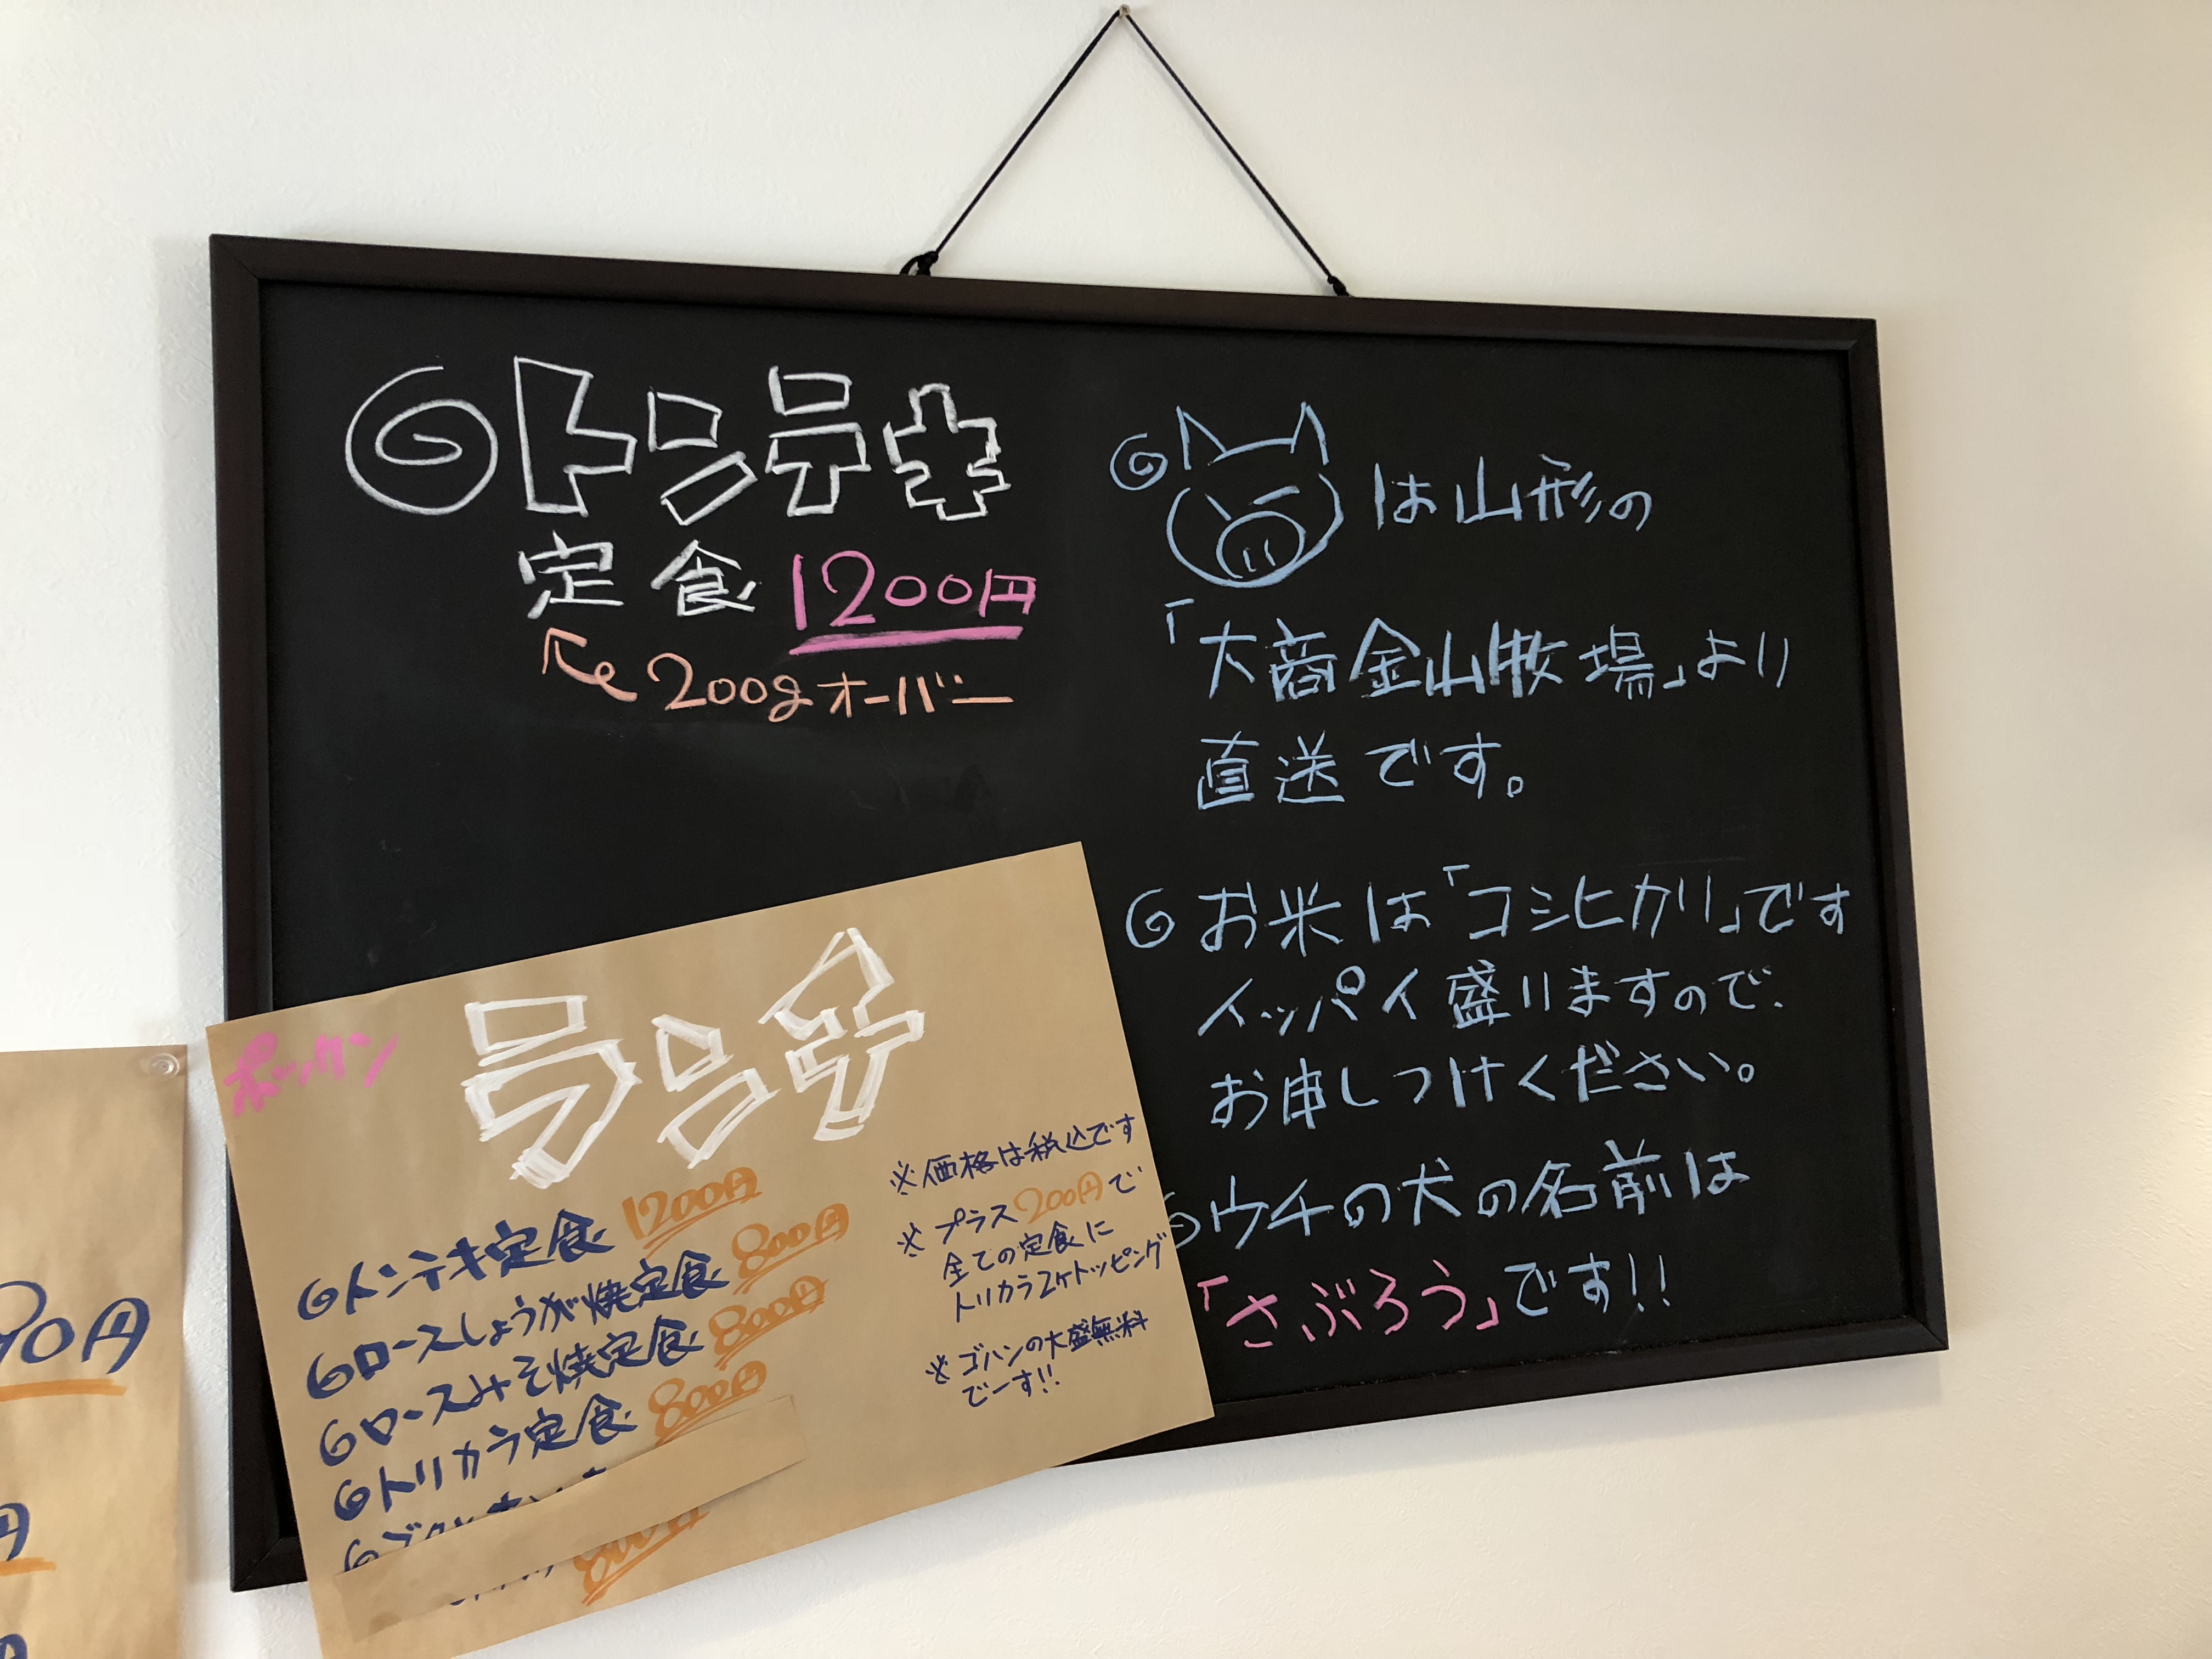 トンテキ
定食 1200円
200gオーバー
は山形の
「大商金山牧場」より
直送です。
お米は「コシヒカリ」です
イッパイ盛りますので、
お申しつけください。
ウチの犬の名前は
「さぶろう」です!!
ポークン
ランチ
トンテキ定食 1200円
ロースしょうが焼定食 800円
ロースみそ焼定食 800円
トリカラ定食 800円
800円
※価格は税込です
※プラス200円で
全ての定食に
トリカラ2ケトッピング
※ゴハンの大盛無料
でーす!!
90円
円